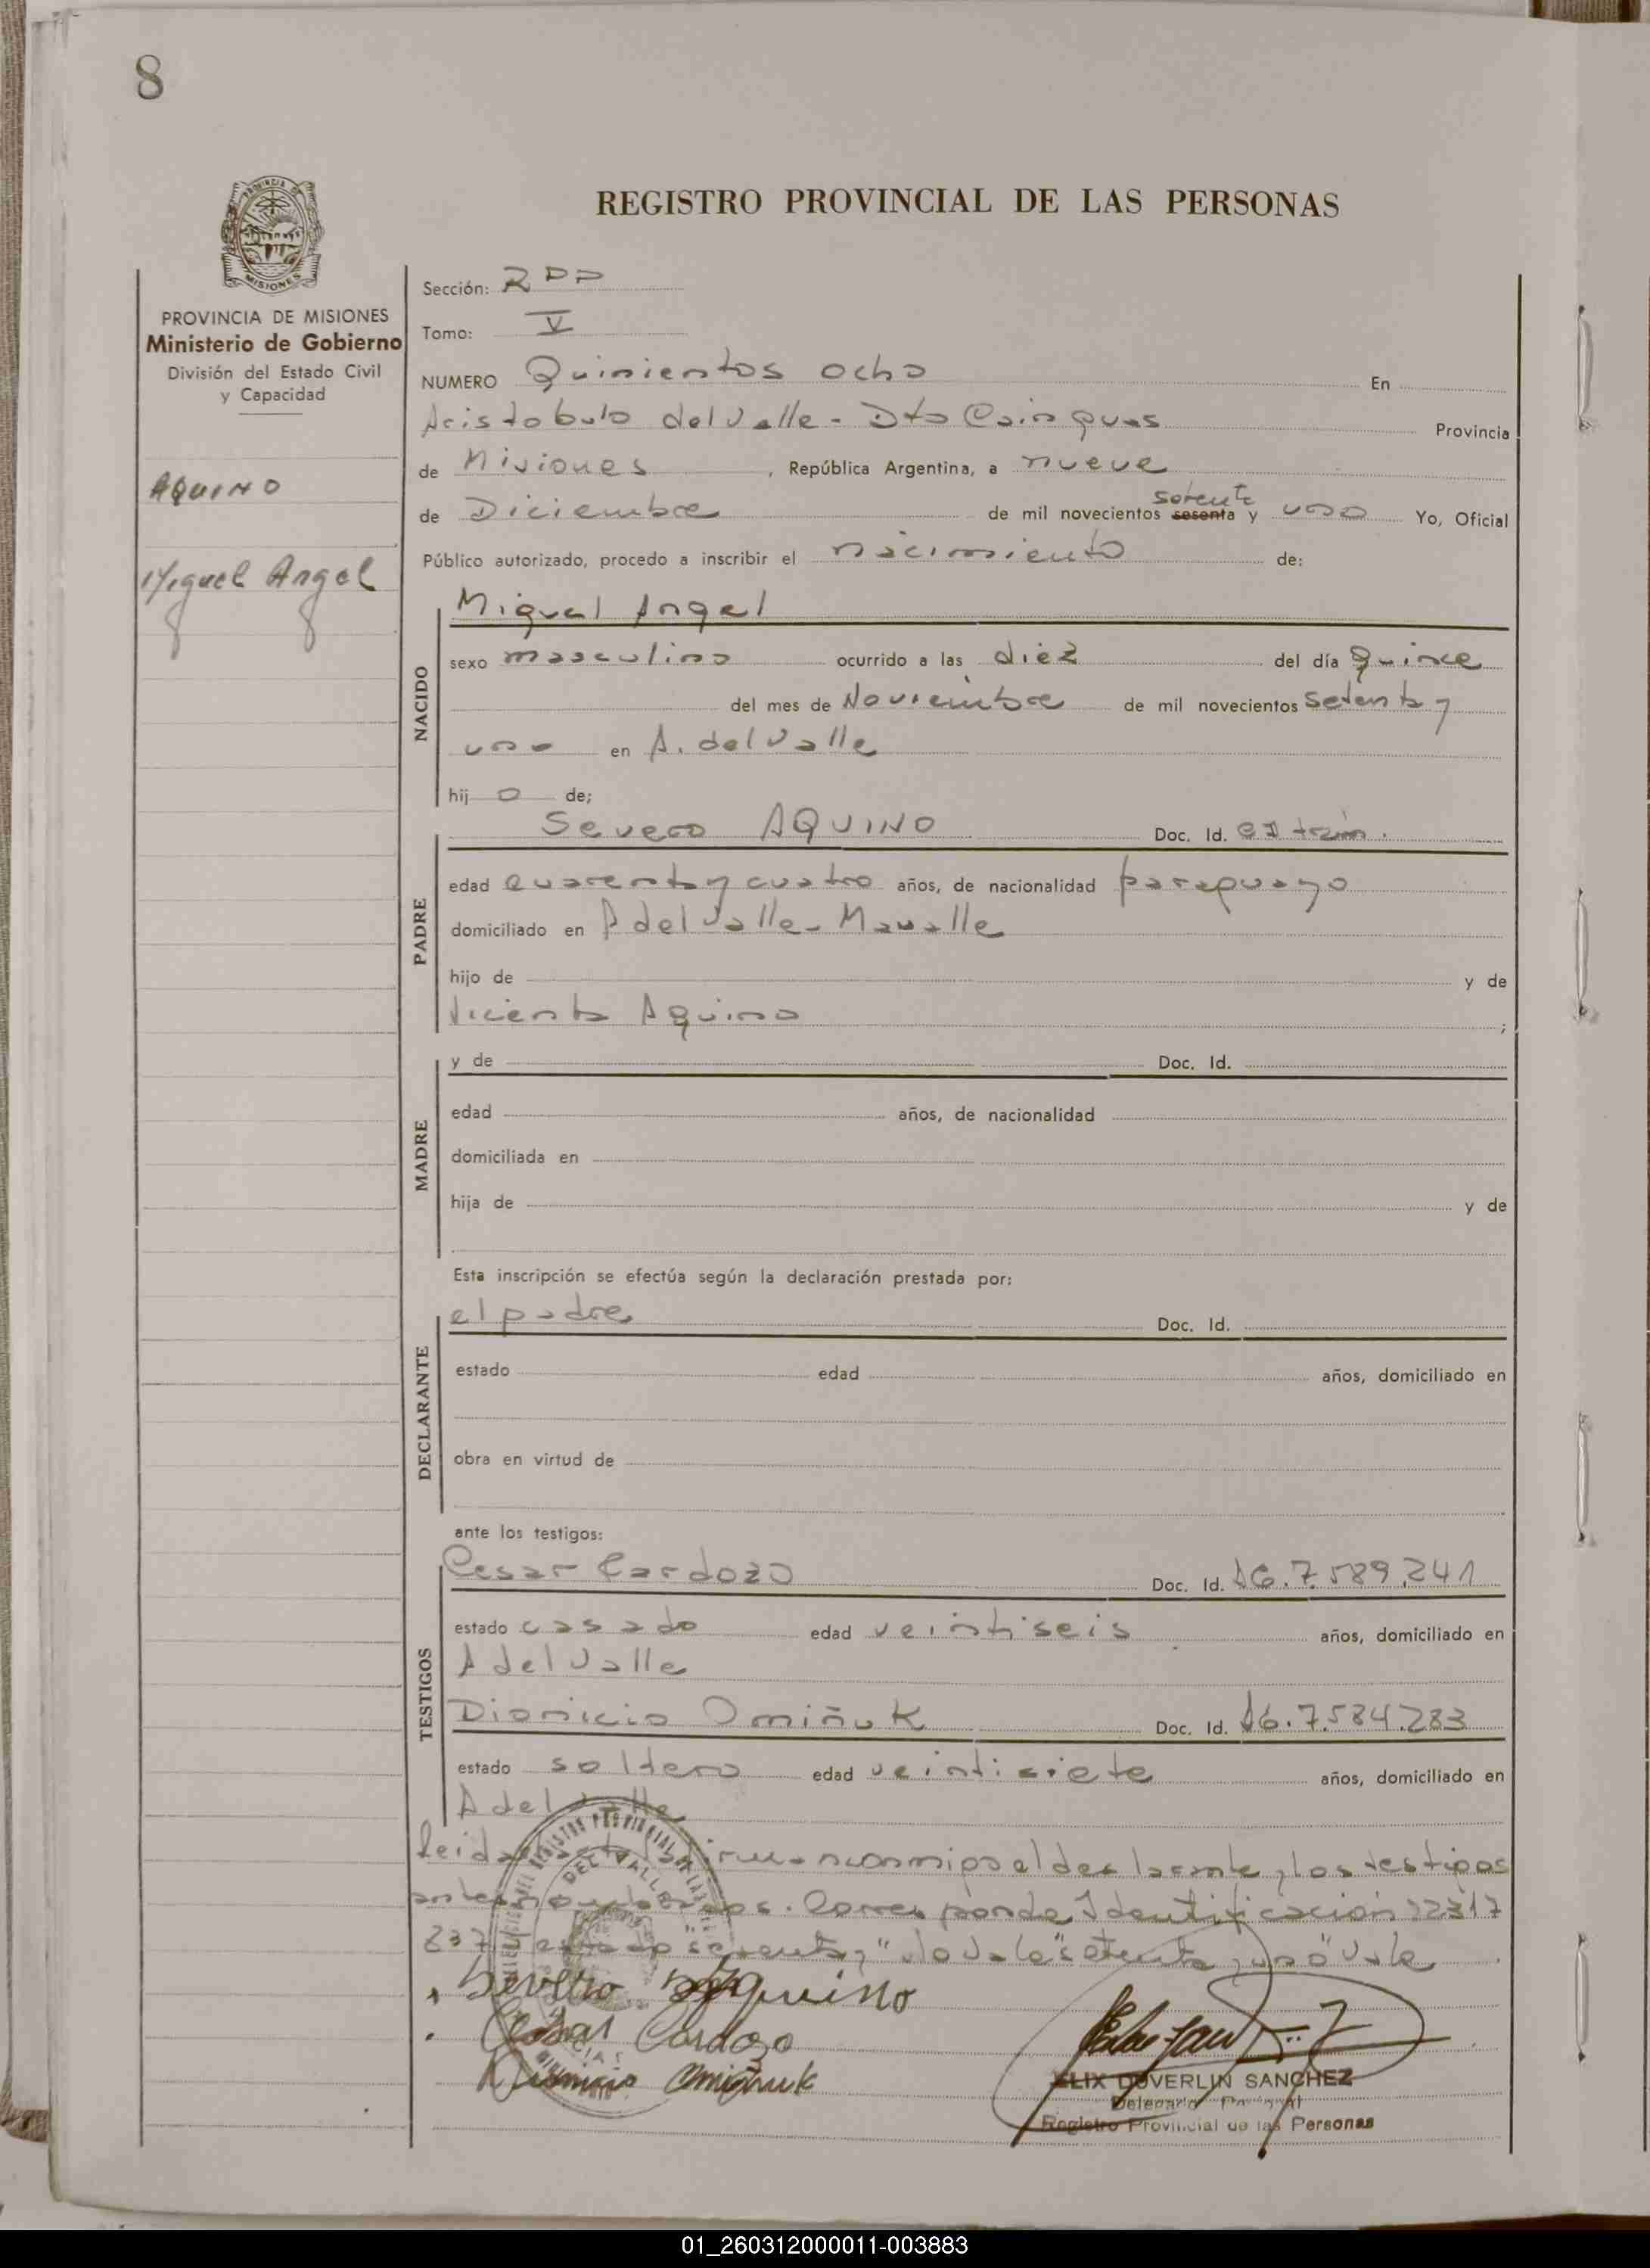 8
REGISTRO PROVINCIAL DE LAS PERSONAS
MISIONES
PROVINCIA DE MISIONES
Ministerio de Gobierno
División del Estado Civil
y Capacidad
AQUINO
Miguel Angel
Sección: RPP
Tomo: V
NUMERO Quinientos ocho En
Aristobulo del Valle - Dto Cainguas Provincia
de Misiones, República Argentina, a nueve
de Diciembre de mil novecientos sesenta setenta y uno Yo, Oficial
Público autorizado, procedo a inscribir el nacimiento de:
NACIDO
Miguel Angel
sexo masculino ocurrido a las diez del día quince
del mes de Noviembre de mil novecientos setenta y
uno en A. del Valle
hij o de;
PADRE
Severo AQUINO Doc. Id.
edad cuarenta y cuatro años, de nacionalidad paraguayo
domiciliado en A del Valle -
hijo de y de
Vicenta Aquino ;
MADRE
y de Doc. Id.
edad años, de nacionalidad
domiciliada en
hija de y de
Esta inscripción se efectúa según la declaración prestada por:
DECLARANTE
el padre Doc. Id.
estado edad años, domiciliado en
obra en virtud de
ante los testigos:
TESTIGOS
Cesar Cardozo Doc. Id. 7.589.241
estado casado edad veintiseis años, domiciliado en
A del Valle
Dionicio Omiñuk Doc. Id. 7.584.283
estado soltero edad veintisiete años, domiciliado en
A del Valle
Leida firman conmigo el declarante y los testigos
Corresponde Identificación 22317
837 "setenta y uno" Vale
Severo Aquino
Cesar Cardozo
Dionicio Omiñuk
FELIX DUVERLIN SANCHEZ
Registro Provincial de las Personas
01_260312000011-003883